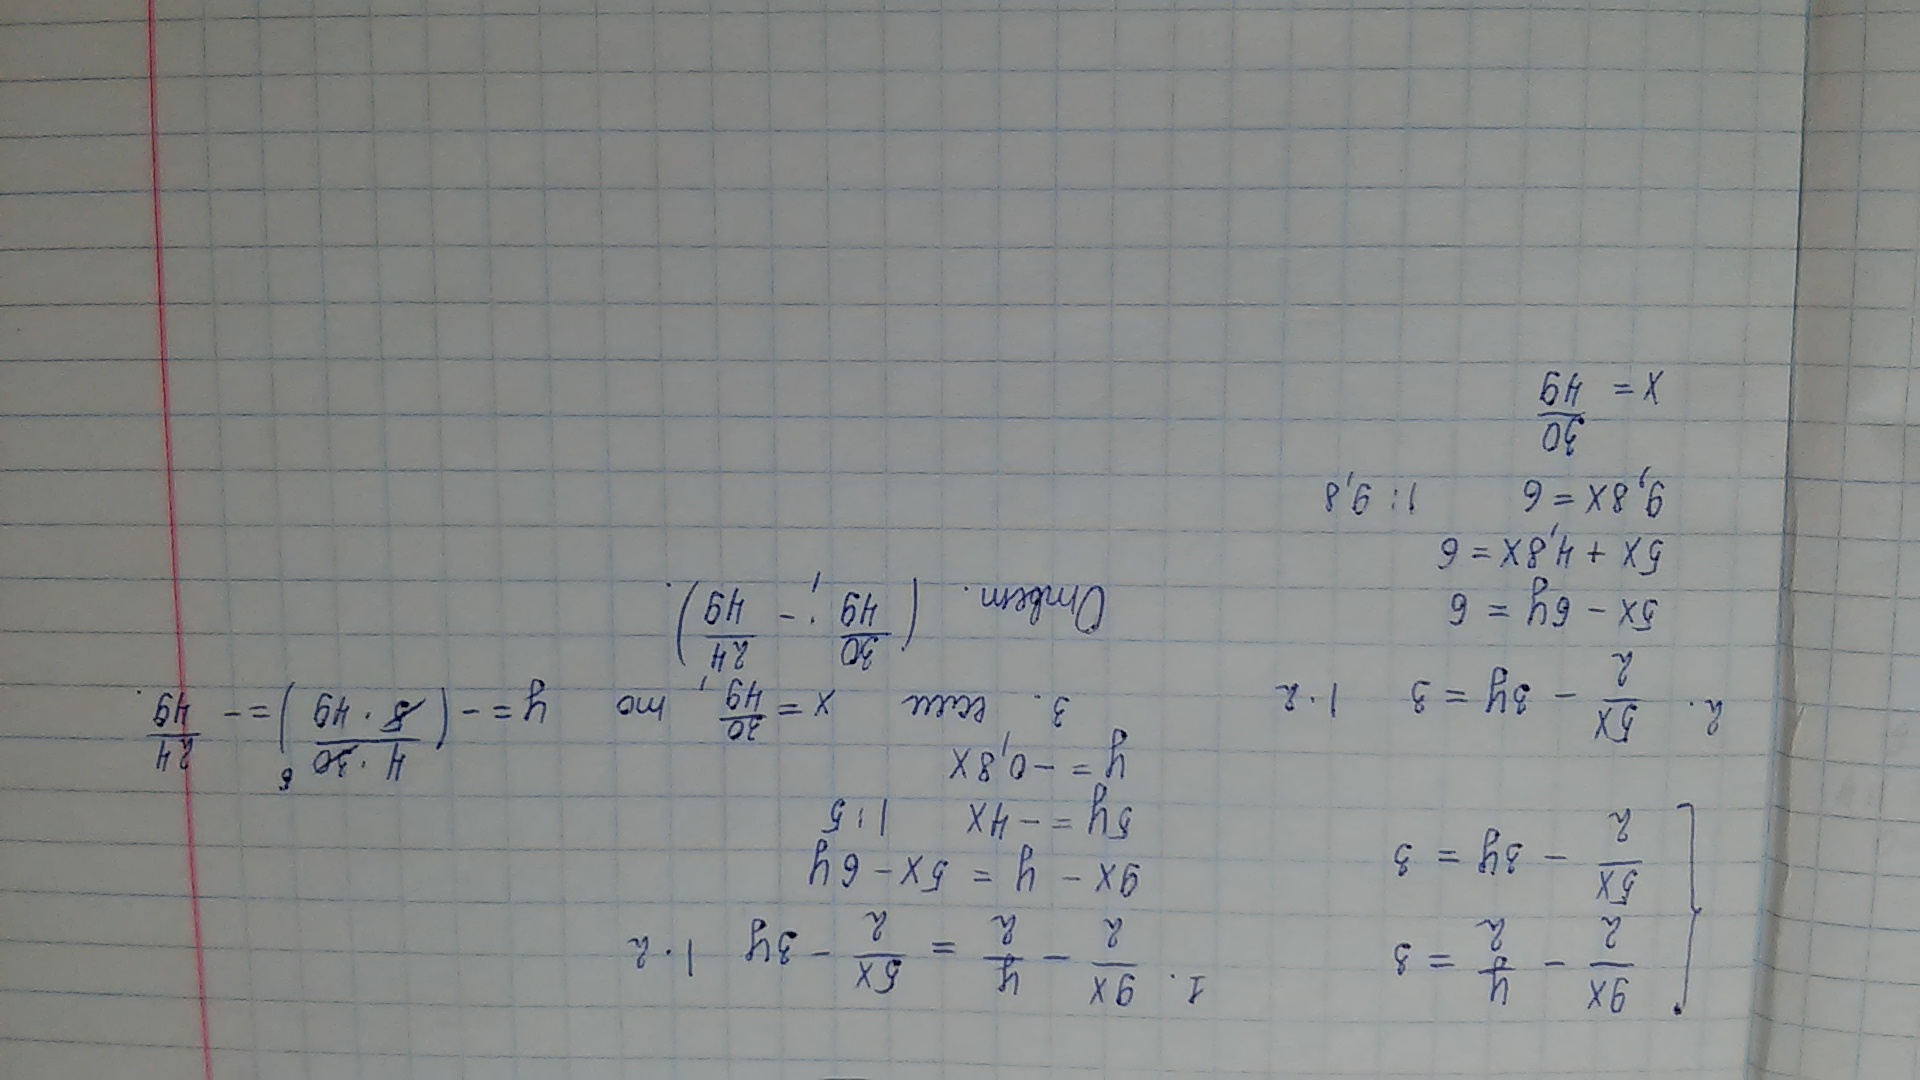 9x/2 - y/2 = 3
5x/2 - 3y = 3
1. 9x/2 - y/2 = 5x/2 - 3y |·2
9x - y = 5x - 6y
5y = -4x |:5
y = -0,8x
2. 5x/2 - 3y = 3 |·2
5x - 6y = 6
5x + 4,8x = 6
9,8x = 6 |:9,8
x = 30/49
3. если x = 30/49, то y = -(4·30 6/5·49) = -24/49.
Ответ. (30/49; -24/49).